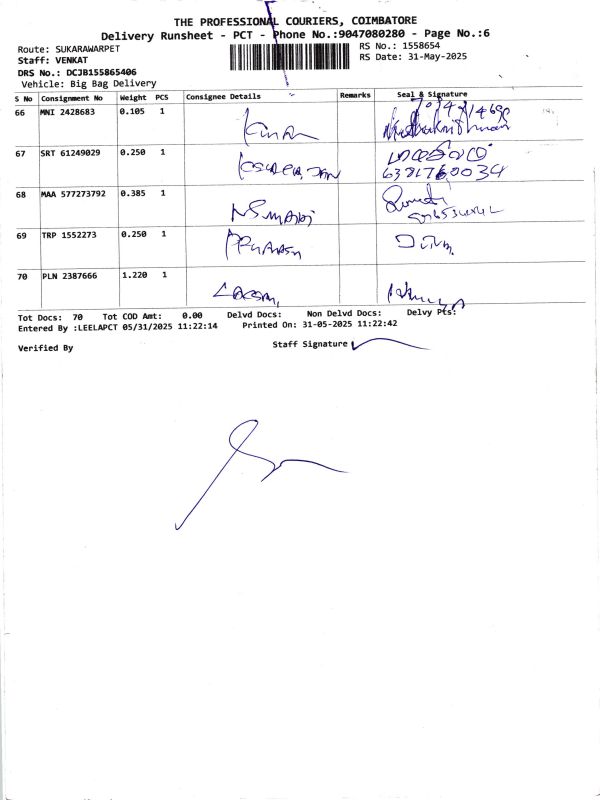 THE PROFESSIONAL COURIERS, COIMBATORE
Delivery Runsheet - PCT - Phone No.:9047080280 - Page No.:6
Route: SUKARAWARPET
RS No.: 1558654
Staff: VENKAT
RS Date: 31-May-2025
DRS No.: DCJB155865406
Vehicle: Big Bag Delivery
S No Consignment No Weight PCS Consignee Details Remarks Seal & Signature
66 MNI 2428683 0.105 1
67 SRT 61249029 0.250 1
68 MAA 577273792 0.385 1
69 TRP 1552273 0.250 1
70 PLN 2387666 1.220 1
Tot Docs: 70 Tot COD Amt: 0.00 Delvd Docs: Non Delvd Docs: Delvy Pts:
Entered By :LEELAPCT 05/31/2025 11:22:14 Printed On: 31-05-2025 11:22:42
Verified By Staff Signature